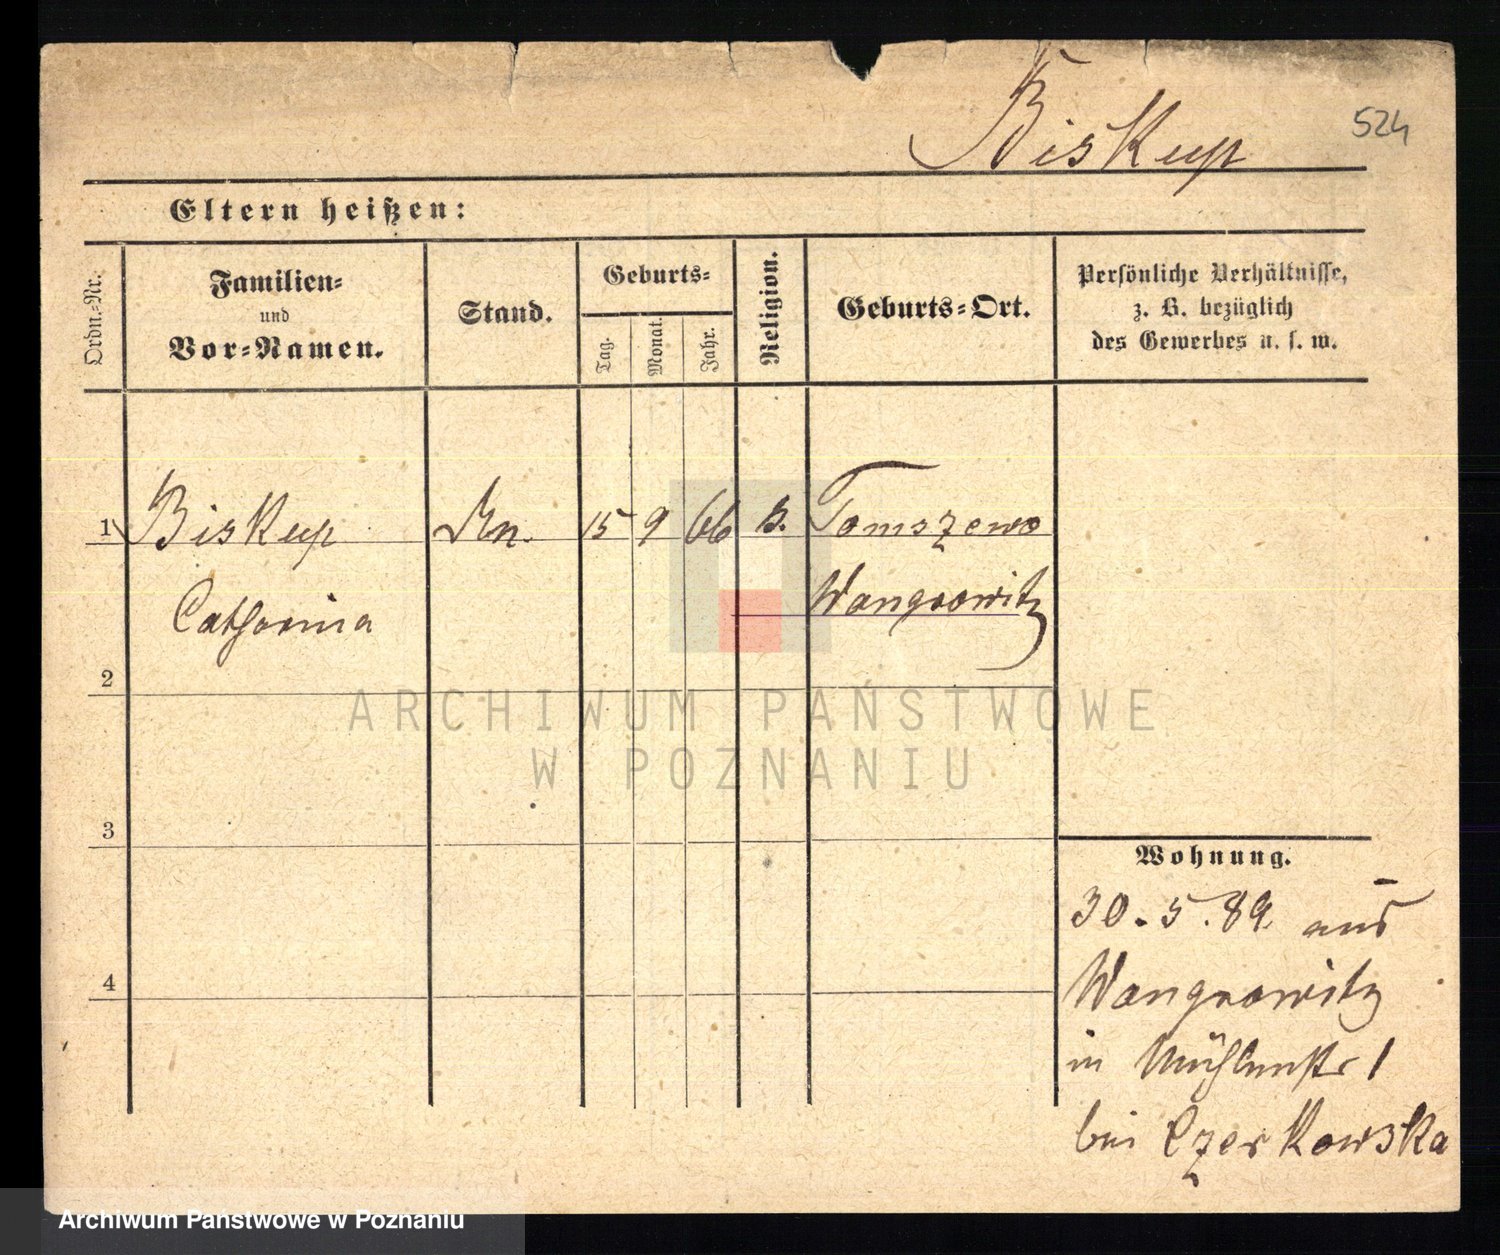 Biskup 524
Eltern heißen:
Ordn.-Nr. Familien- und Vor-Namen. Stand. Geburts- Tag. Monat. Jahr. Religion. Geburts-Ort. Persönliche Verhältnisse, z. B. bezüglich des Gewerbes u. s. w.
1 Biskup 15 9 66 Tomszewo
Catharina Wangrowitz
2
ARCHIWUM PAŃSTWOWE
W POZNANIU
3
Wohnung.
30.5.89 aus
4 Wangrowitz
in Mühlenstr 1
bei Czerkowska
Archiwum Państwowe w Poznaniu